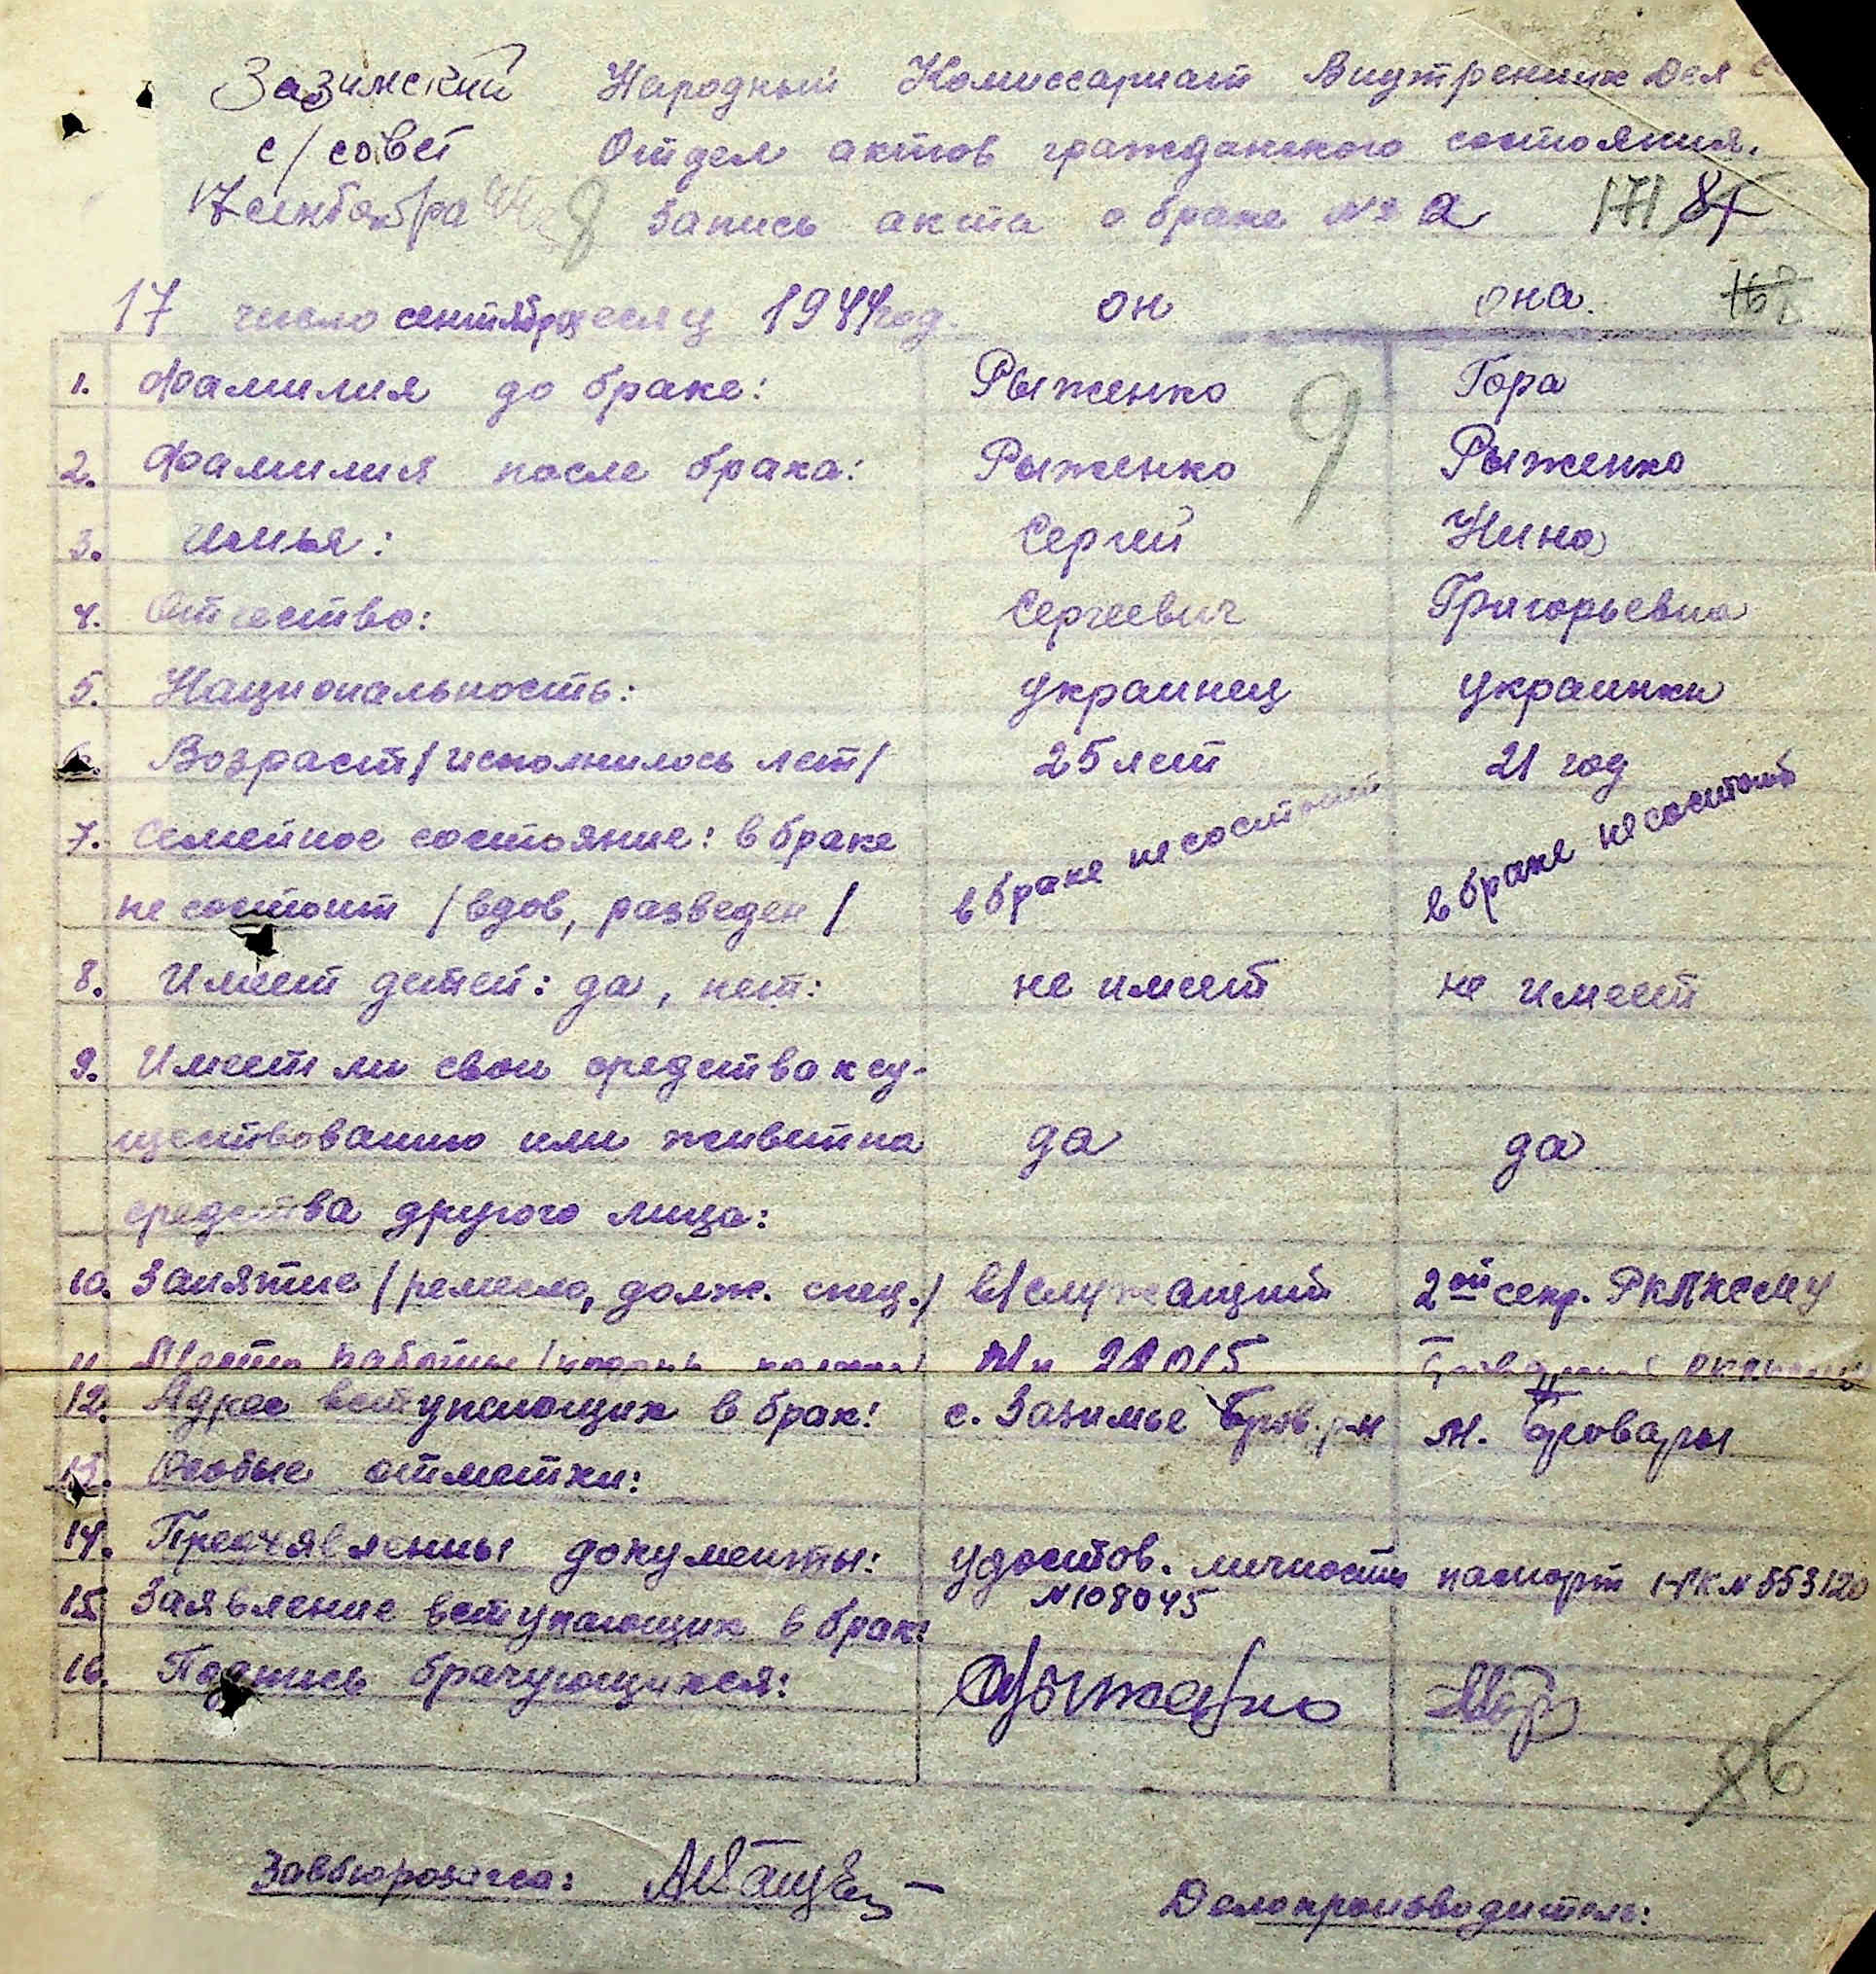 Зазимский Народный Комиссариат Внутренних Дел
с/совет Отдел актов гражданского состояния.
17 сентября 44 8 Запись акта о браке № 2 171 85
17 число сентября месяц 1944 год. он она. 168
1. Фамилия до браке: Рыженко Гора 9
2. Фамилия после брака: Рыженко Рыженко
3. Имья: Сергий Нина
4. Отчество: Сергеевич Григорьевна
5. Национальность: украинец украинка
6. Возраст /исполнилось лет/ 25 лет 21 год
7. Семейное состояние: в браке
не состоит /вдов, разведен/ в браке не состоит в браке не состоит
8. Имеет детей: да, нет: не имеет не имеет
9. Имеет ли свои средства к су-
ществованию или живет на да да
средства другого лица:
10. Занятие /ремесло, долж. спец./ в/служащий 2ой секр. РКЛКСМУ
11. Место работы 21015
12. Адрес вступающих в брак: с. Зазимье Бров. р-н м. Бровары
13. Особые отметки:
14. Предъявленны документы: удостов. личности паспорт № 553120
№108045
15. Заявление вступающих в брак:
16. Подпись брачующихся: Рыженко
86
Завбюрозагса:
Делопроизводитель: